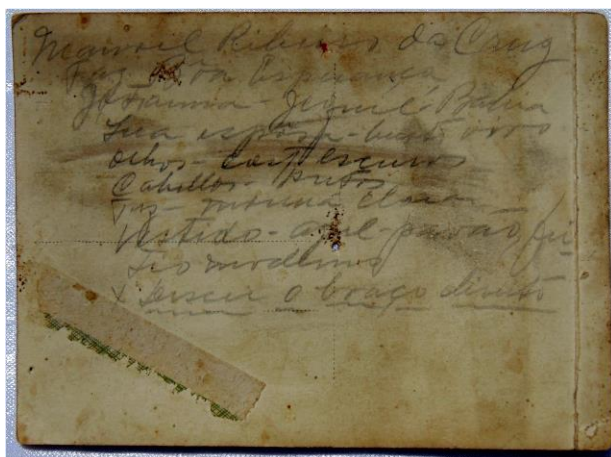 Manoel Ribeiro da Cruz
Faz. Boa Esperança
Jitaúna - Jequié Bahia
Sua esposa - busto
olhos - cast escuros
Cabellos - pretos
Tez - morena clara
Vestido - azul - pavão fei
tio moderno
x Descer o braço direito